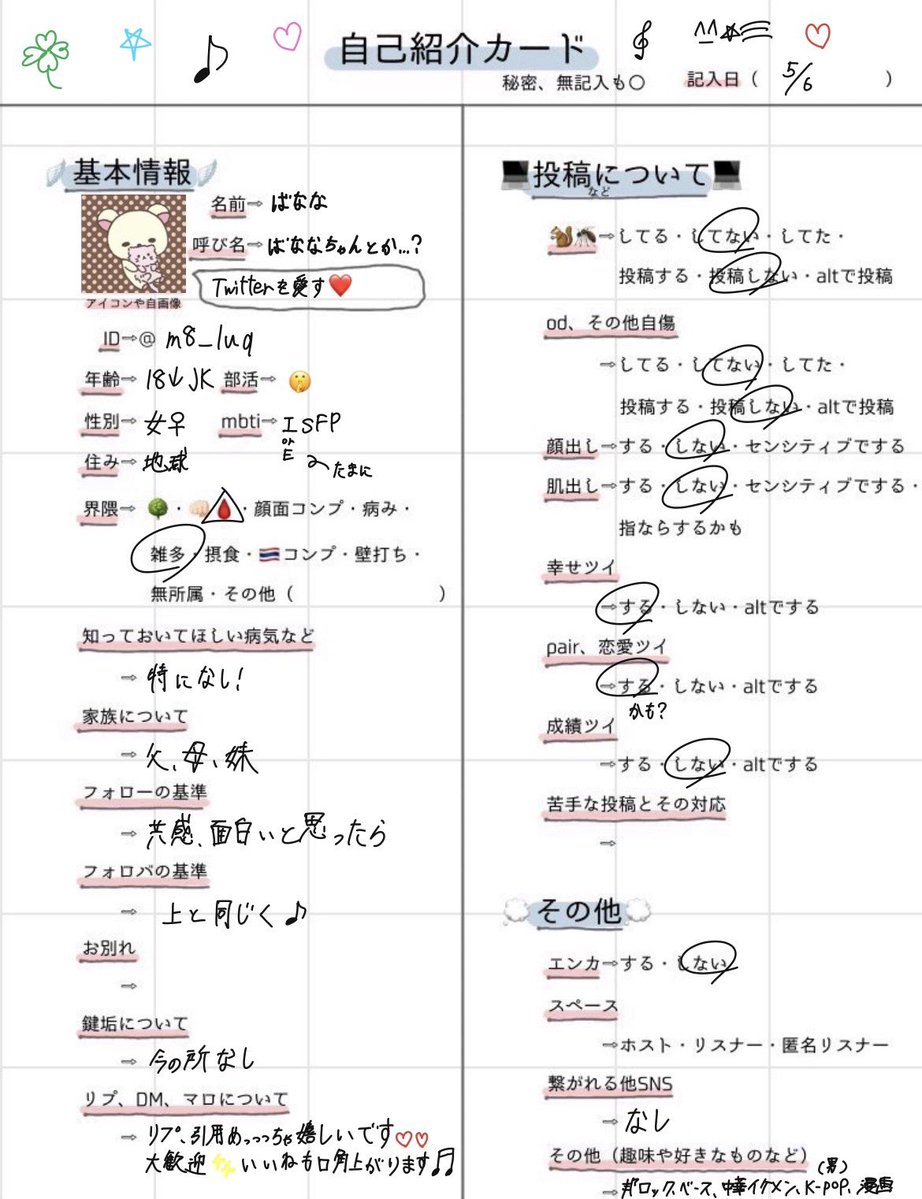 自己紹介カード
秘密、無記入も〇
記入日（ 5/6 ）
基本情報
アイコンや自画像
名前⇒ ばなな
呼び名⇒ ばななちゃんとか…?
Twitterを愛す❤️
ID⇒@ m8_luq
年齢⇒ 18↓JK 部活⇒ 🤫
性別⇒ 女♀ mbti⇒ ISFP
or
E たまに
住み⇒ 地球
界隈⇒ 🌳・👊🏻🩸・顔面コンプ・病み・
雑多・摂食・🇹🇭コンプ・壁打ち・
無所属・その他（ ）
知っておいてほしい病気など
⇒ 特になし!
家族について
⇒ 父、母、妹
フォローの基準
⇒ 共感、面白いと思ったら
フォロバの基準
⇒ 上と同じく♪
お別れ
⇒
鍵垢について
⇒ 今の所なし
リプ、DM、マロについて
⇒ リプ、引用めっっっちゃ嬉しいです♡♡
大歓迎 いいねも口角上がります♬
💻投稿について💻
など
🐿️🦟⇒してる・してない・してた・
投稿する・投稿しない・altで投稿
od、その他自傷
⇒してる・してない・してた・
投稿する・投稿しない・altで投稿
顔出し⇒する・しない・センシティブでする
肌出し⇒する・しない・センシティブでする・
指ならするかも
幸せツイ
⇒する・しない・altでする
pair、恋愛ツイ
⇒する・しない・altでする
かも?
成績ツイ
⇒する・しない・altでする
苦手な投稿とその対応
⇒
💭その他💭
エンカ⇒する・しない
スペース
⇒ホスト・リスナー・匿名リスナー
繋がれる他SNS
⇒ なし
その他（趣味や好きなものなど）
(男)
⇒邦ロック、ベース、中華イケメン、K-POP、漫画